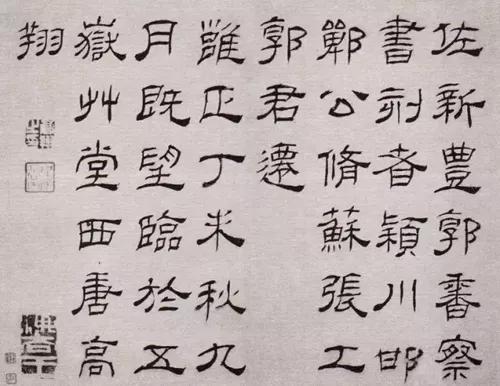 佐新豐郭香察
書刻者穎川邯
鄲公脩蘇張工
郭君遷
雍正丁未秋九
月既望臨於五
嶽艸堂西唐高
翔